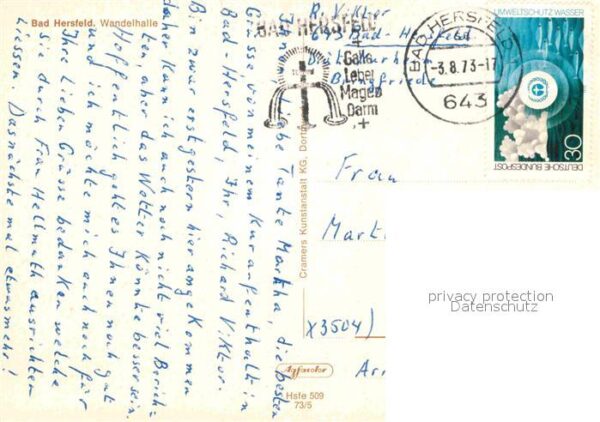 Bad Hersfeld. Wandelhalle
Liebe Tante Martha, die besten
Grüsse, von meinem Kuraufenthalt in
Bad-Hersfeld, Ihr, Richard Viktor.
Bin zwar erst gestern hier angekommen
daher kann ich auch noch nicht viel Berich-
ten, aber das Wetter könnte besser sein.
Hoffentlich geht es Ihnen noch gut
und ich möchte mich auch noch für
Ihre Lieben Grüsse bedanken welche
Sie durch Frau Hellmuth ausrichten
liessen. Das nächste mal etwas mehr!
Cramers Kunstanstalt KG, Dortm
Agfacolor
Hsfe 509
73/5
R. Viktor
Bad-Hersfeld
BAD HERSFELD
Galle
Leber
Magen
Darm
BAD HERSFELD 1
-3.8.73-17
643
UMWELTSCHUTZ WASSER
DEUTSCHE BUNDESPOST
30
Frau
Mart
x3504)
Ar
privacy protection
Datenschutz